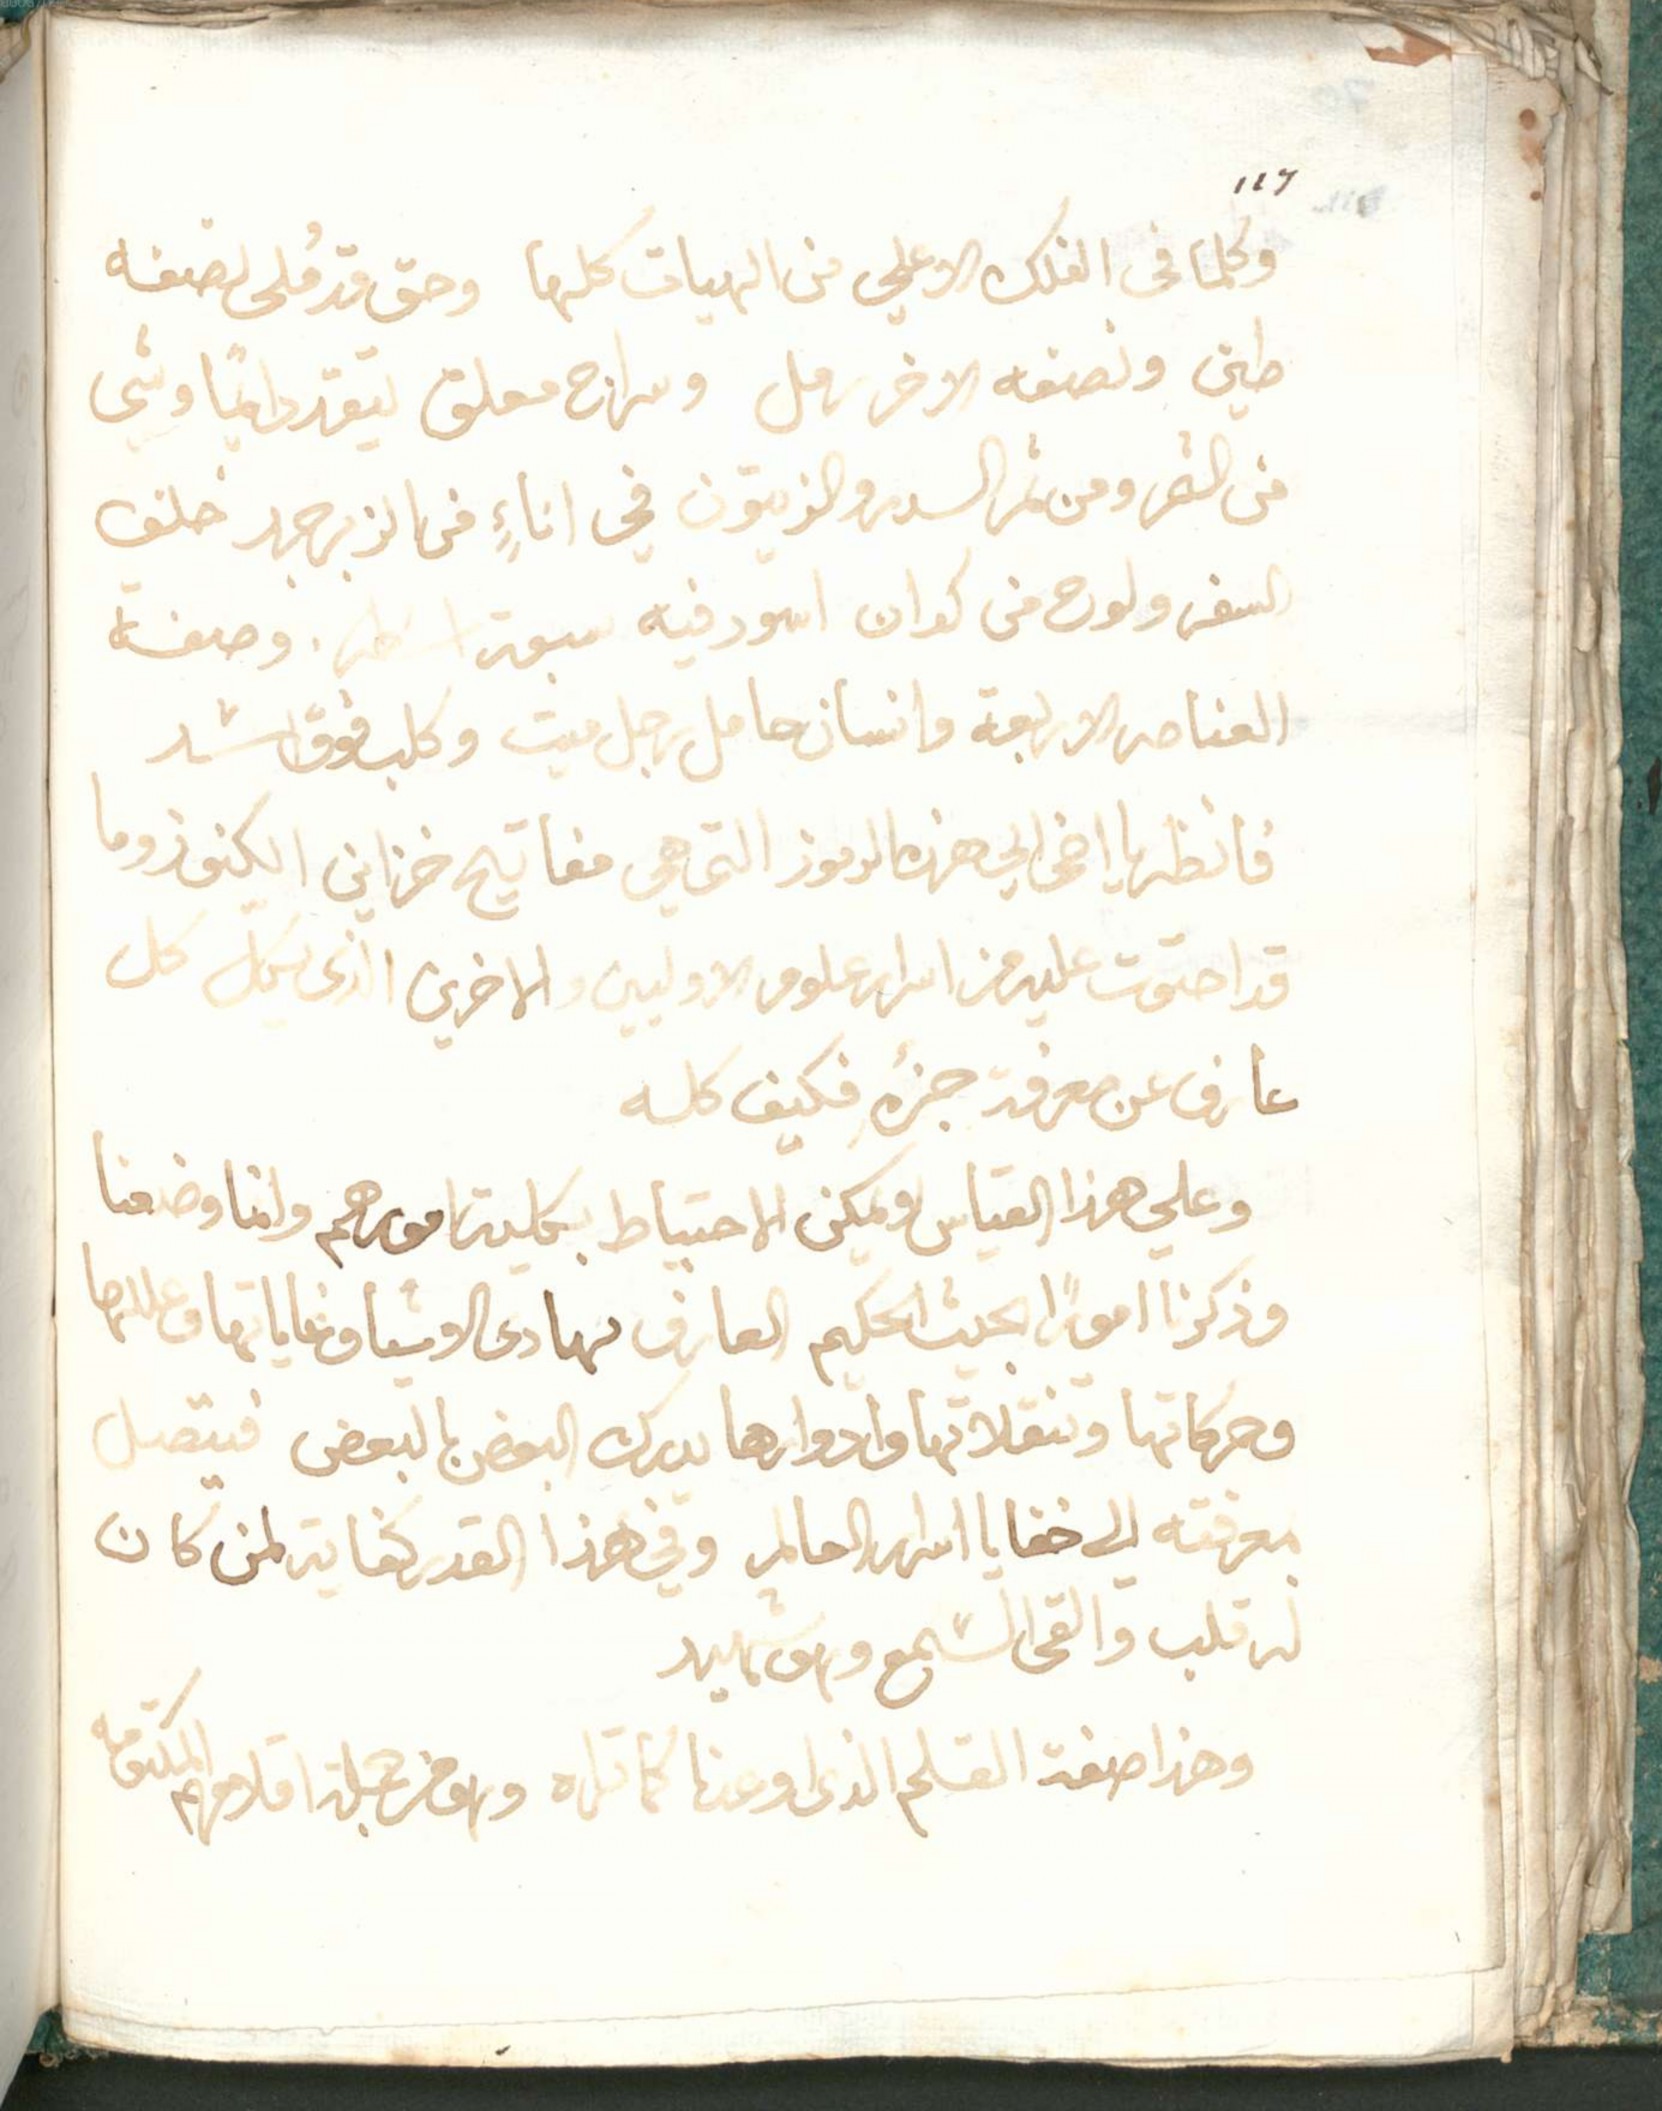 117
وكلما فى الفلك الاعلي من الهيات كلها وحق قد مُلى نصفه
طين ونصفه الاخر رمل وسراج معلق يتقد دايمًا وشي
من الشعر ومن ثمر السدر والزيتون في اناءٍ من الزبرجد خلف
السفر ولوح من كدان اسود فيه سبعة وصفة
العناصر الاربعة وانسان حامل رجل ميت وكلب فوق اسد
فانظر يا اخى الي هذه الرموز التى هي مفاتيح خزاين الكنوز وما
قد احتوت عليه من اسرار علوم الاوليين والاخرين الذى يكل كل
عارف عن معرفة جزئه فكيف كله
وعلي هذا القياس لا يمكن الاحتياط بكلية امورهم وانما وضعنا
وذكرنا امورًا بحيث الحكيم العارف بهادى الاشيا وغاياتها وعللها
وحركاتها وتنقلاتها وادوارها يدرك البعض بالبعض فيتصل
بمعرفته الى خفايا اسرار العالم وفي هذا القدر كفاية لمن كان
له قلب والقى السمع وهو شهيد
وهذا صفة القلم الذى اوعدنا كما تراه وهو من جملة اقلامهم المكتومه